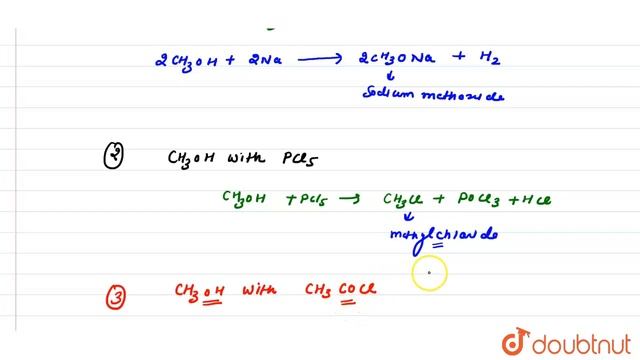 2CH3OH + 2Na ⟶ 2CH3ONa + H2
↓
Sodium methoxide
② CH3OH with PCl5
CH3OH + PCl5 ⟶ CH3Cl + POCl3 + HCl
↓
methylchloride
③ CH3OH with CH3COCl
doubtnut